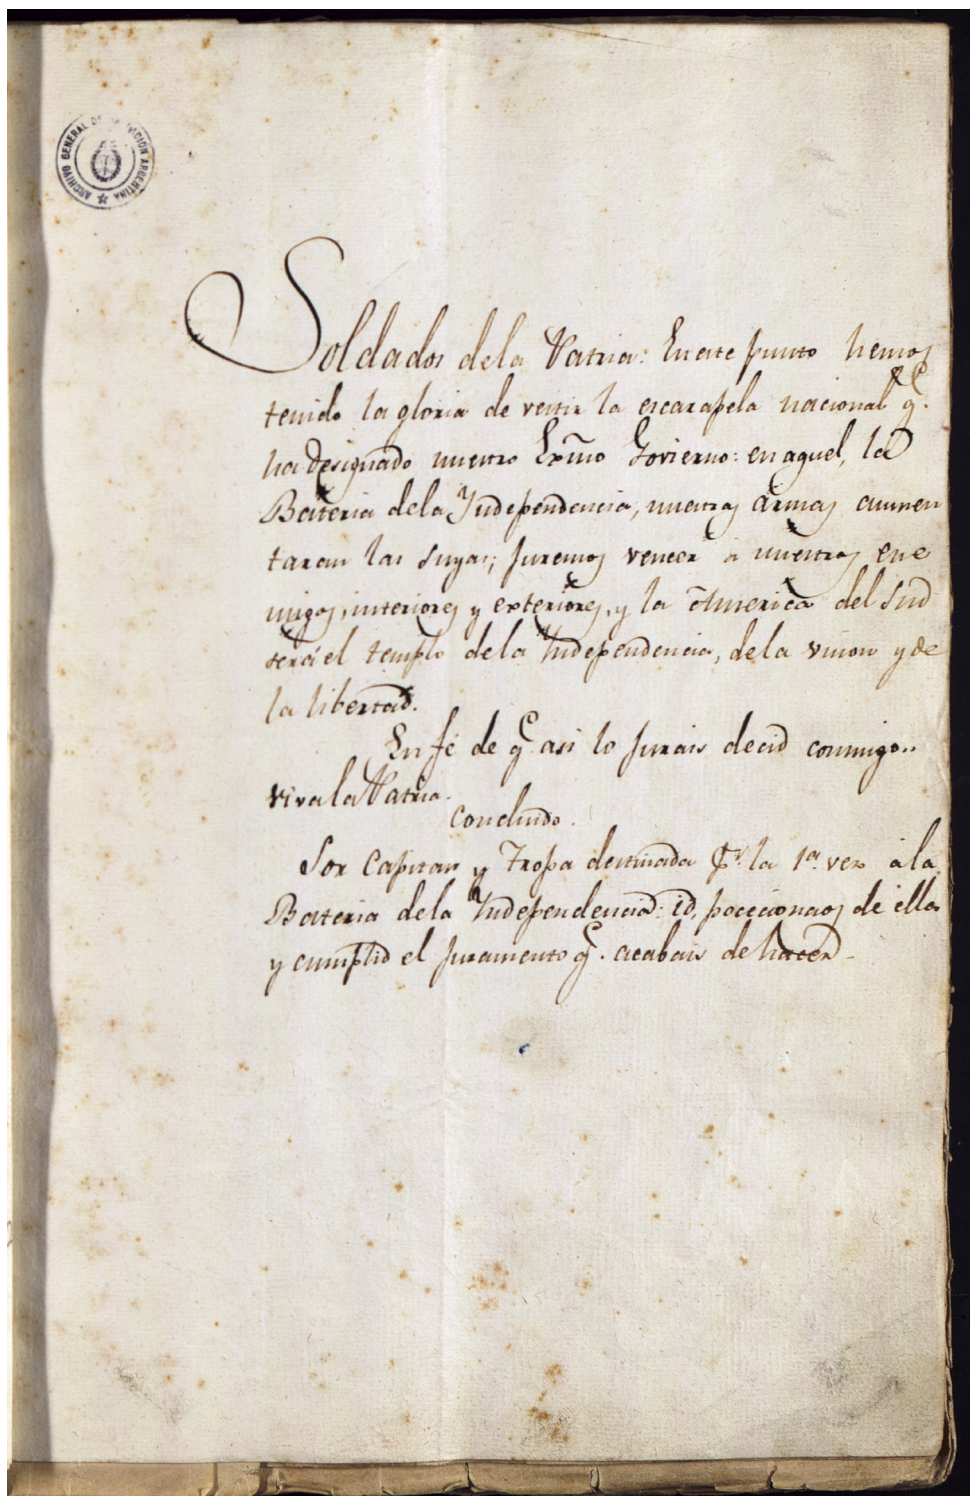 ARCHIVO GENERAL DE LA NACION ARGENTINA
Soldados dela Patria: En este punto hemos
tenido la gloria de vestir la escarapela nacional q.e
ha designado nuestro Exmõ Govierno: en aquel, la
Bateria dela Independencia, nuestras armas aumen
taran las suyas; juremos vencer á nuestros ene
migos, interiores y exteriores, y la America del Sud
será el templo dela Independencia, dela union y de
la libertad.
En fé de q.e asi lo jurais decid conmigo..
viva la Patria.
Concluido.
Sor Capitan y Tropa destinada p.r la 1.a vez á la
Bateria dela Independencia: id, pocecionaos de ella
y cumplid el juramento q.e acabais de hacer.